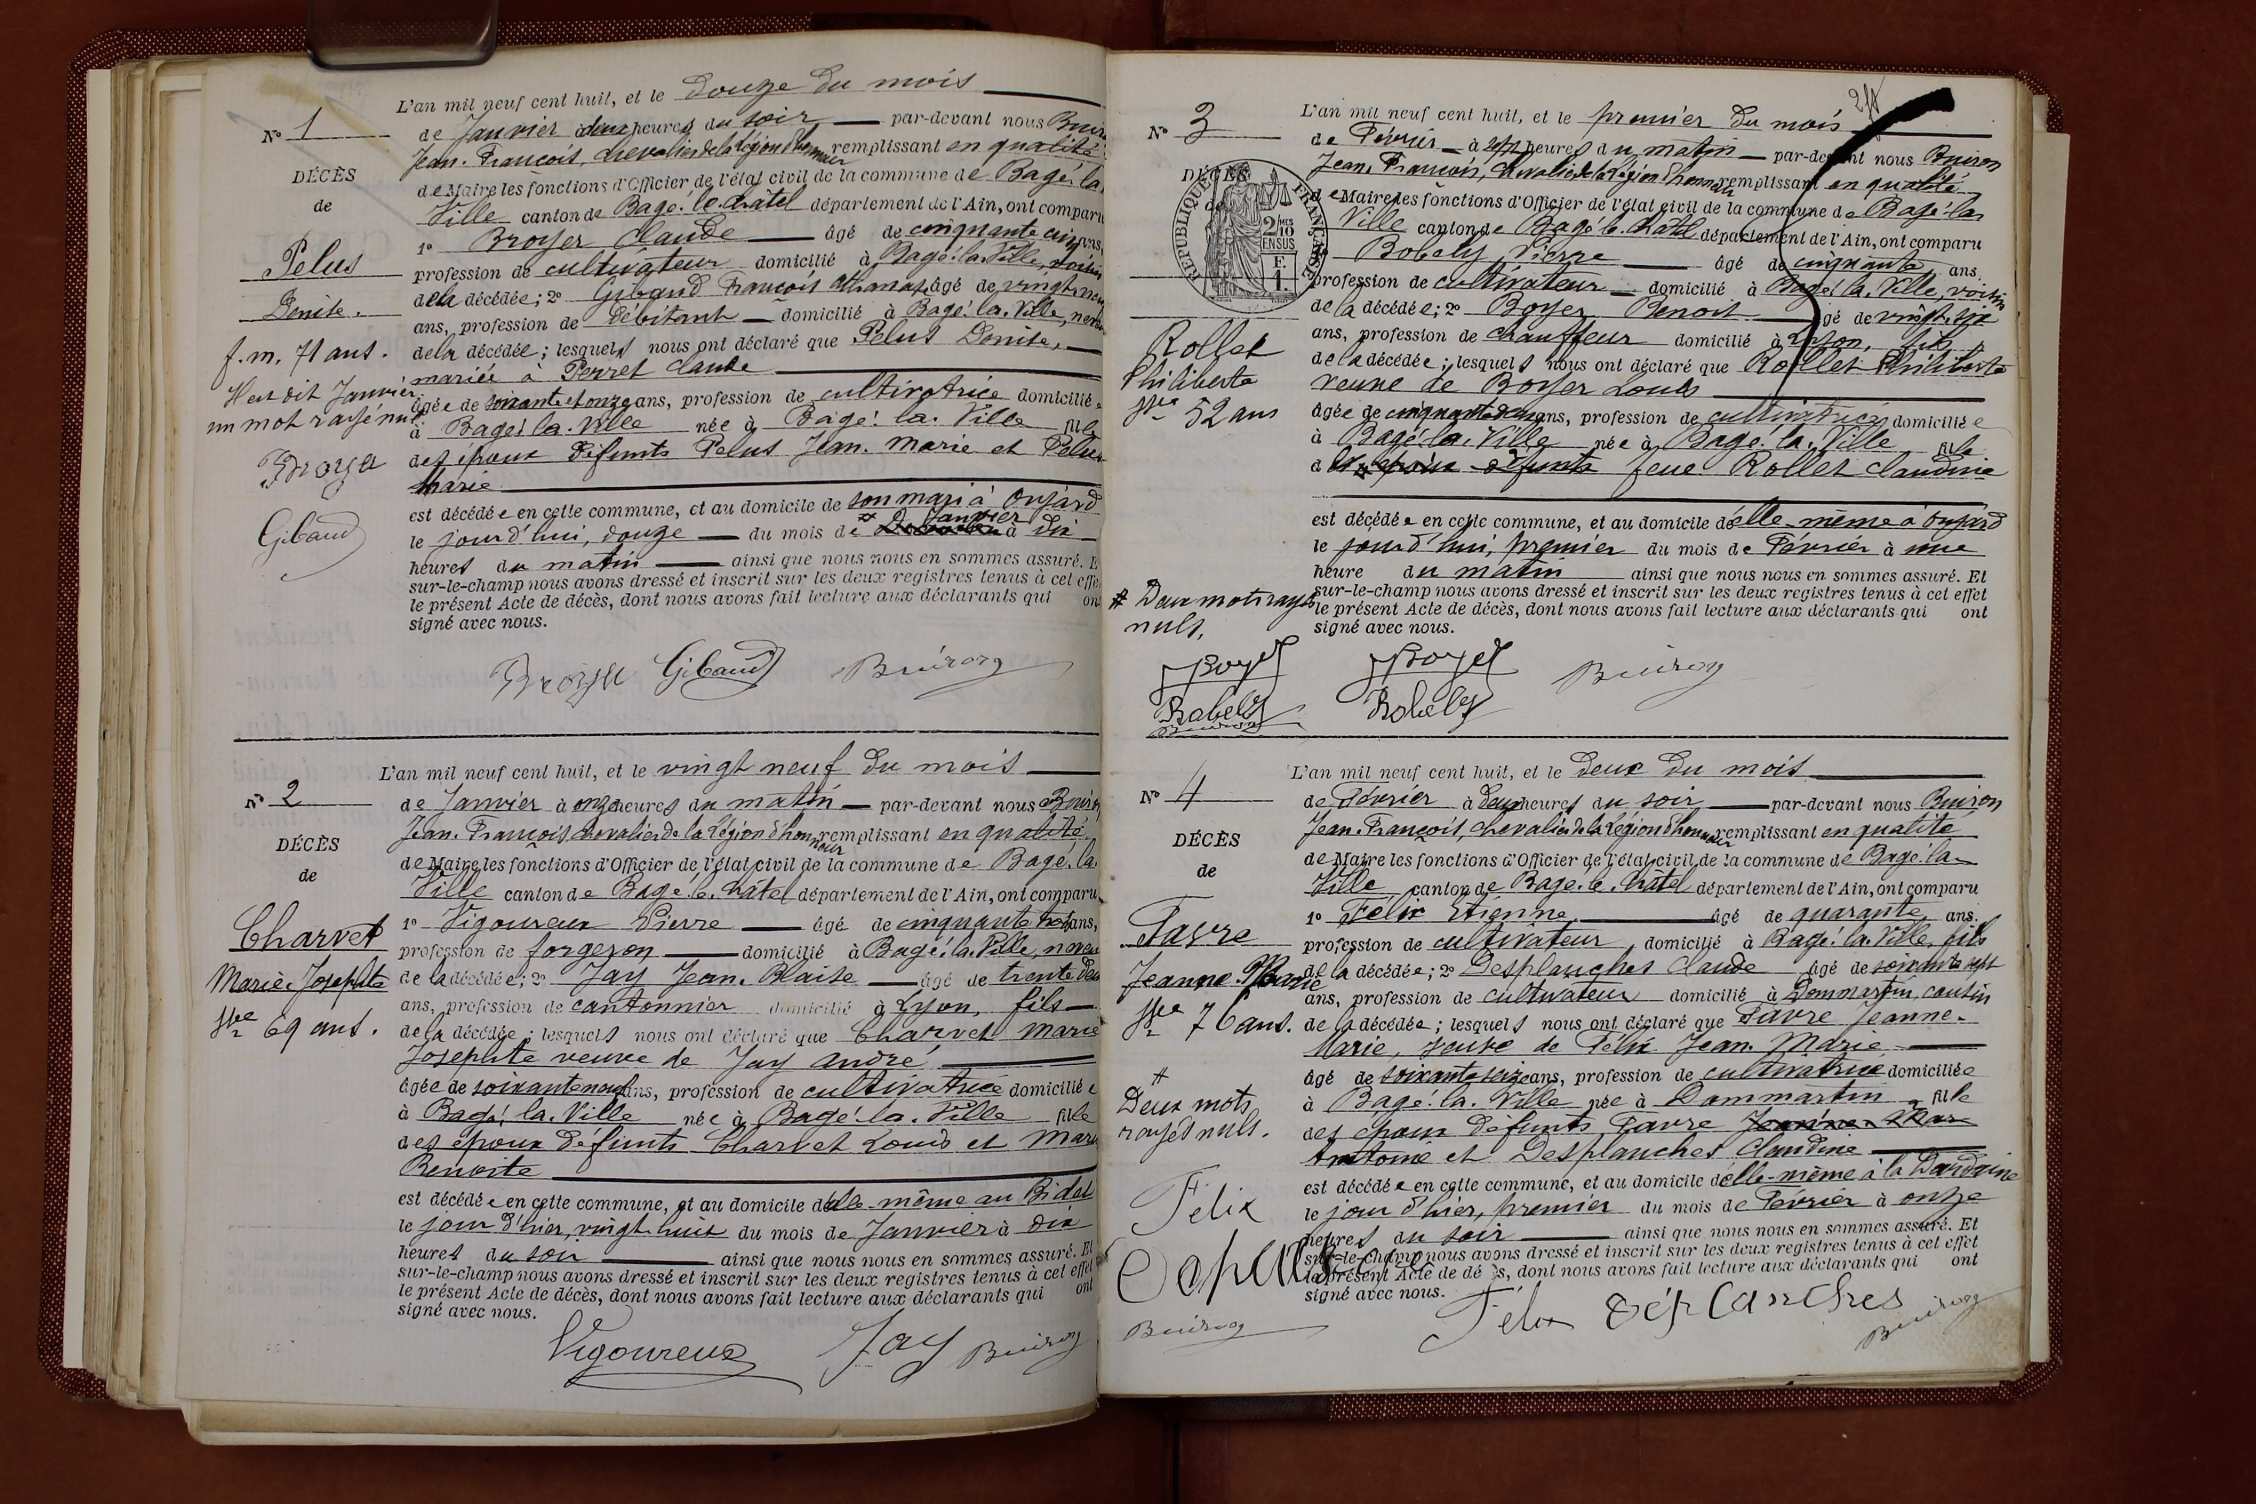 L'an mil neuf cent huit, et le douze du mois
N° 1
de Janvier à deux heures du soir par-devant nous Buiron
Jean-François, chevalier de la légion d'honneur remplissant en qualité
DÉCÈS
de Maire les fonctions d'Officier de l'état civil de la commune de Bagé-la-
de
Ville canton de Bagé-le-Châtel département de l'Ain, ont comparu
1° Broyer Claude âgé de cinquante cinq ans,
Pelus
profession de cultivateur domicilié à Bagé-la-Ville, voisin
Denise.
de la décédée; 2° Gibaud François Athanase âgé de vingt-neuf
ans, profession de débitant domicilié à Bagé-la-Ville, neveu
f. m. 71 ans.
de la décédée; lesquels nous ont déclaré que Pelus Denise,
mariée à Perret Claude
Heu dit Janvier
un mot rayé nul
âgée de soixante et onze ans, profession de cultivatrice domiciliée
à Bagé-la-Ville née à Bagé-la-Ville fille
Broyer
des époux défunts Pelus Jean-Marie et Pelus
Marie
Gibaud
est décédée en cette commune, et au domicile de son mari à Onjard
le jourd'hui, douze du mois de Janvier à dix
heures du matin ainsi que nous nous en sommes assuré. Et
sur-le-champ nous avons dressé et inscrit sur les deux registres tenus à cet effet
le présent Acte de décès, dont nous avons fait lecture aux déclarants qui ont
signé avec nous.
Broyer Gibaud Buiron
L'an mil neuf cent huit, et le vingt neuf du mois
N° 2
de Janvier à onze heures du matin par-devant nous Buiron
Jean-François chevalier de la légion d'honneur remplissant en qualité
DÉCÈS
de Maire les fonctions d'Officier de l'état civil de la commune de Bagé-la-
de
Ville canton de Bagé-le-Châtel département de l'Ain, ont comparu
1° Vigoureux Pierre âgé de cinquante trois ans,
Charvet
profession de forgeron domicilié à Bagé-la-Ville, neveu
Marie Josephte
de la décédée; 2° Jay Jean-Blaise âgé de trente deux
ans, profession de cantonnier domicilié à Lyon, fils
vve 69 ans.
de la décédée; lesquels nous ont déclaré que Charvet Marie
Josephte veuve de Jay André
âgée de soixante neuf ans, profession de cultivatrice domiciliée
à Bagé-la-Ville née à Bagé-la-Ville fille
des époux défunts Charvet Louis et Marie
Benoite
est décédée en cette commune, et au domicile d'elle-même au Bidal
le jour d'hier, vingt-huit du mois de Janvier à dix
heures du soir ainsi que nous nous en sommes assuré. Et
sur-le-champ nous avons dressé et inscrit sur les deux registres tenus à cet effet
le présent Acte de décès, dont nous avons fait lecture aux déclarants qui ont
signé avec nous.
Vigoureux Jay Buiron
L'an mil neuf cent huit, et le premier du mois
N° 3
de Février à sept heures du matin par-devant nous Buiron
Jean-François, chevalier de la légion d'honneur remplissant en qualité
DÉCÈS
de Maire les fonctions d'Officier de l'état civil de la commune de Bagé-la-
RÉPUBLIQUE FRANÇAISE
2/10 MES EN SUS
F. 1.
Ville canton de Bagé-le-Châtel département de l'Ain, ont comparu
1° Robely Pierre âgé de cinquante ans,
profession de cultivateur domicilié à Bagé-la-Ville, voisin
de la décédée; 2° Boyer Benoit âgé de vingt-six
Rollet
ans, profession de chauffeur domicilié à Lyon, fils
Philiberte
de la décédée; lesquels nous ont déclaré que Rollet Philiberte
veuve de Boyer Louis
vve 52 ans
âgée de cinquante deux ans, profession de cultivatrice domiciliée
à Bagé-la-Ville née à Bagé-la-Ville fille
des époux défunts feue Rollet Claudine
est décédée en cette commune, et au domicile d'elle-même à Onjard
le jourd'hui, premier du mois de Février à une
heure du matin ainsi que nous nous en sommes assuré. Et
# Deux mots rayés
nuls.
sur-le-champ nous avons dressé et inscrit sur les deux registres tenus à cet effet
le présent Acte de décès, dont nous avons fait lecture aux déclarants qui ont
signé avec nous.
Boyer Boyer Buiron
Robely Robely
Buiron
L'an mil neuf cent huit, et le deux du mois
N° 4
de Février à deux heures du soir par-devant nous Buiron
Jean-François, chevalier de la légion d'honneur remplissant en qualité
DÉCÈS
de Maire les fonctions d'Officier de l'état civil de la commune de Bagé-la-
de
Ville canton de Bagé-le-Châtel département de l'Ain, ont comparu
1° Félix Etienne âgé de quarante ans,
Favre
profession de cultivateur domicilié à Bagé-la-Ville, fils
Jeanne Marie
de la décédée; 2° Desplanches Claude âgé de soixante sept
ans, profession de cultivateur domicilié à Dommartin, cousin
vve 76 ans.
de la décédée; lesquels nous ont déclaré que Favre Jeanne-
Marie, veuve de Félix Jean-Marie
âgé de soixante seize ans, profession de cultivatrice domiciliée
#
Deux mots
rayés nuls.
à Bagé-la-Ville née à Dommartin fille
des époux défunts Favre Jeanne-Mar
Antoine et Desplanches Claudine
est décédée en cette commune, et au domicile d'elle-même à la Dardaine
Félix
le jour d'hier, premier du mois de Février à onze
heures du soir ainsi que nous nous en sommes assuré. Et
sur-le-champ nous avons dressé et inscrit sur les deux registres tenus à cet effet
le présent Acte de décès, dont nous avons fait lecture aux déclarants qui ont
signé avec nous.
Buiron Félix Déplanches Buiron